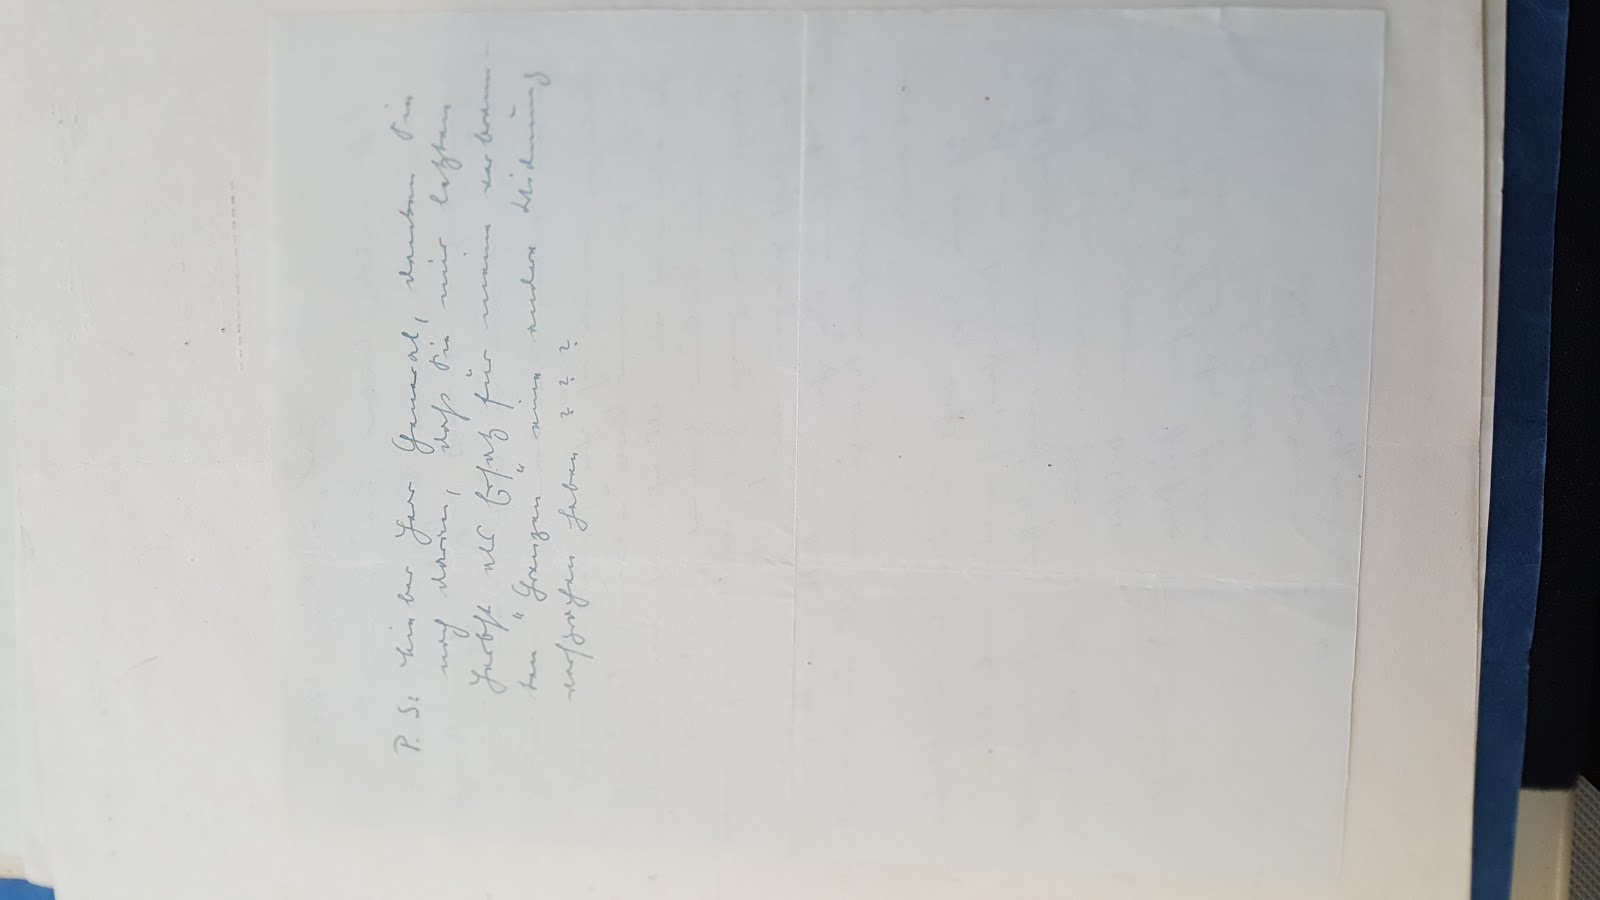 P.S: Lieber Herr General, denken Sie
noch daran, daß Sie mir letzten
Herbst als Ersatz für meine verbrann-
ten "Grenzen" eine andere Widmung
versprochen haben ? ? ?